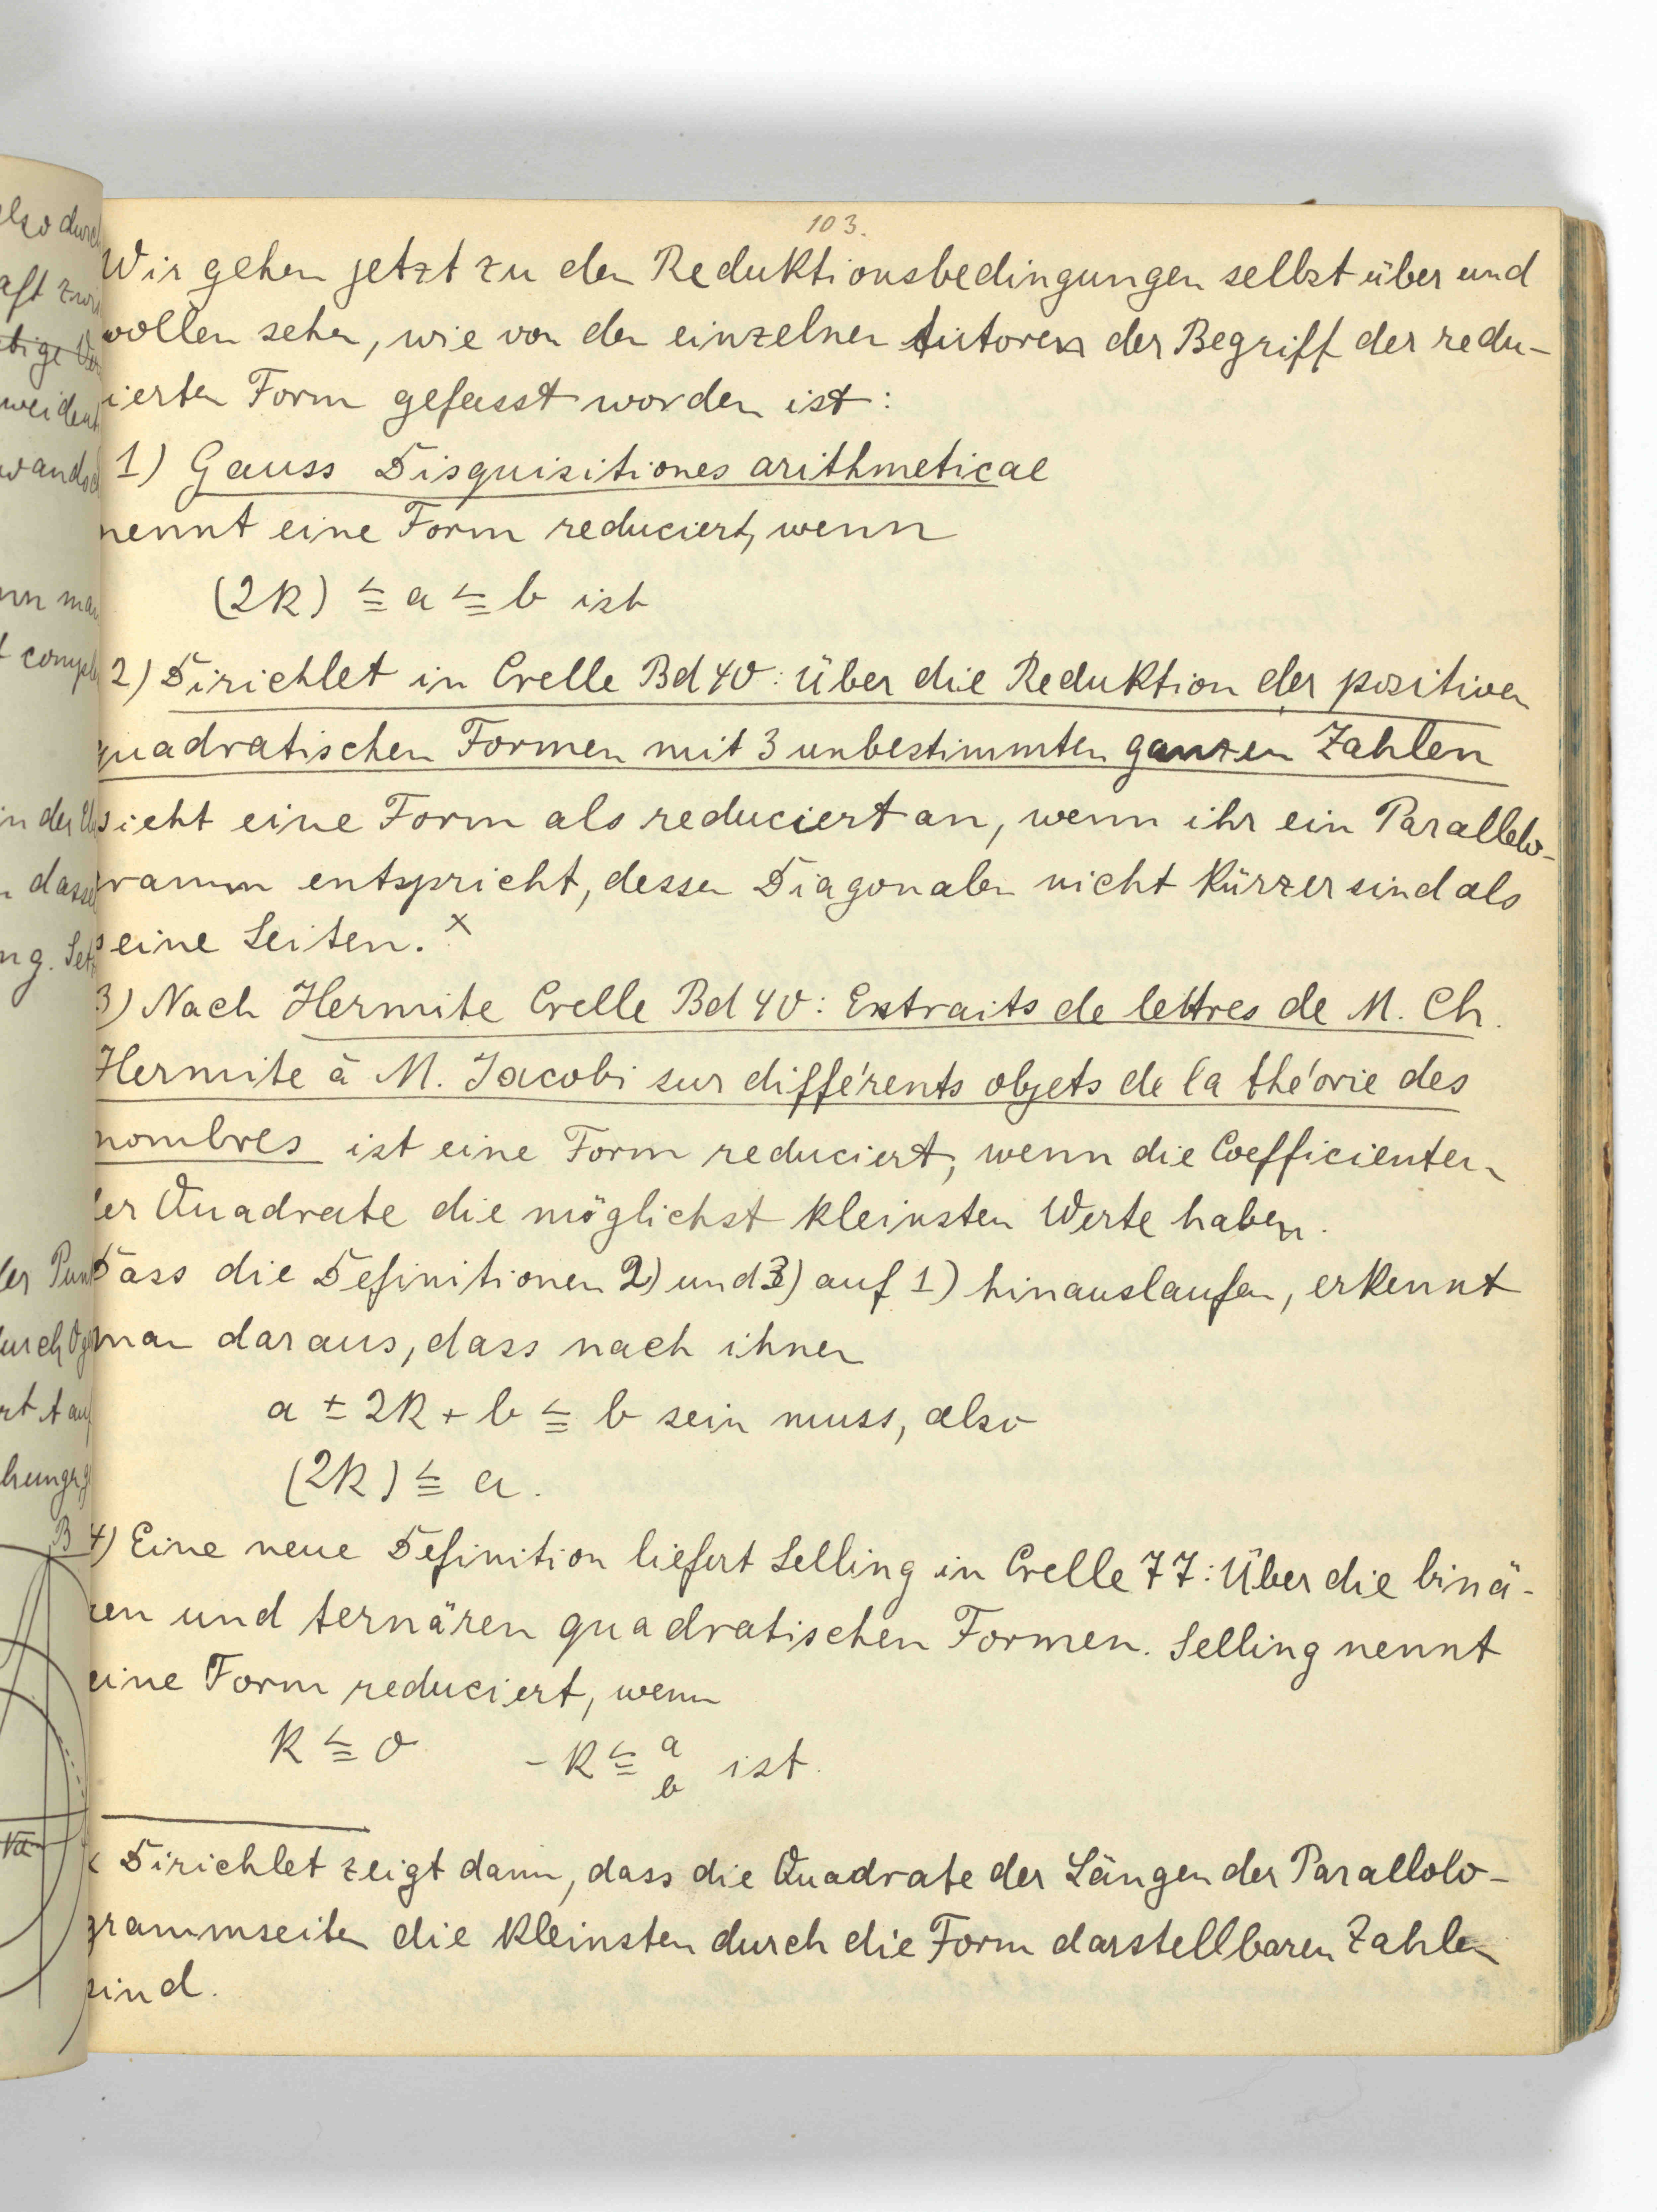 103.
Wir gehen jetzt zu den Reduktionsbedingungen selbst über und
wollen sehen, wie von den einzelnen Autoren der Begriff der redu-
ierten Form gefasst worden ist:
1) Gauss Disquisitiones arithmeticae
nennt eine Form reduciert, wenn
(2k) ≦ a ≦ b ist
2) Dirichlet in Crelle Bd 40: Über die Reduktion der positiven
quadratischen Formen mit 3 unbestimmten ganzen Zahlen
sieht eine Form als reduciert an, wenn ihr ein Parallelo-
ramm entspricht, dessen Diagonalen nicht kürzer sind als
seine Seiten. x
3) Nach Hermite Crelle Bd 40: Extraits de lettres de M. Ch.
Hermite à M. Jacobi sur différents objets de la théorie des
nombres ist eine Form reduciert, wenn die Coefficienten
der Quadrate die möglichst kleinsten Werte haben.
Dass die Definitionen 2) und 3) auf 1) hinauslaufen, erkennt
man daraus, dass nach ihnen
a ± 2k + b ≦ b sein muss, also
(2k) ≦ a.
4) Eine neue Definition liefert Selling in Crelle 77: Über die binä-
ren und ternären quadratischen Formen. Selling nennt
eine Form reduciert, wenn
k ≦ 0 -k ≦ a b ist.
x Dirichlet zeigt dann, dass die Quadrate der Längen der Parallolo-
grammseiten die kleinsten durch die Form darstellbaren Zahlen
sind.